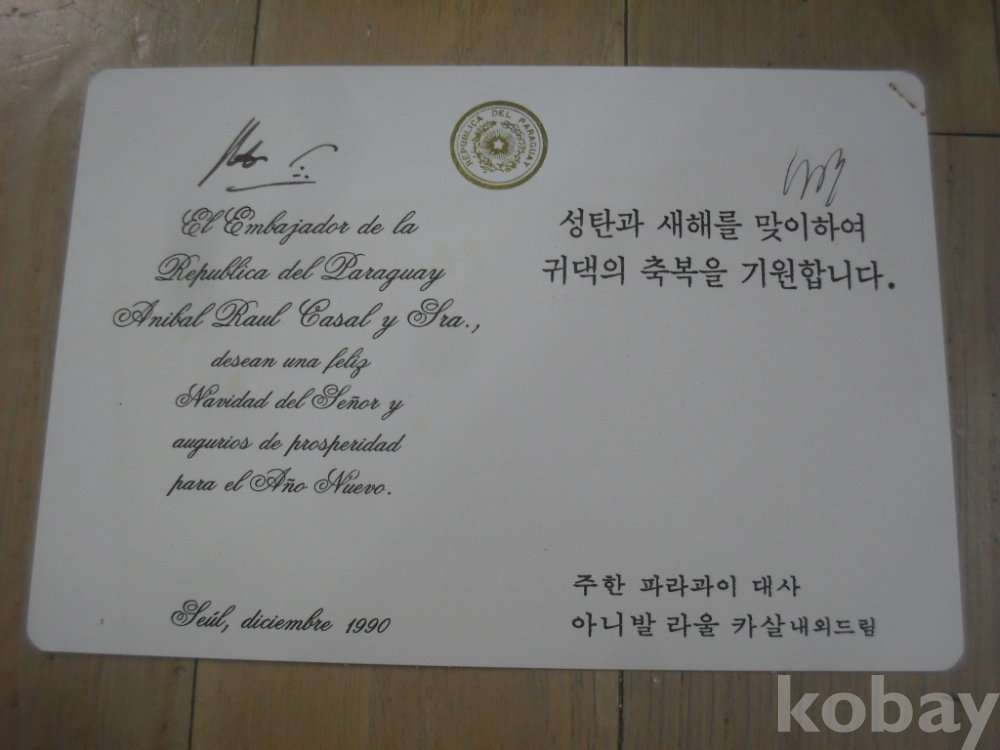 REPUBLICA DEL PARAGUAY
El Embajador de la
Republica del Paraguay
Anibal Raul Casal y Sra.,
desean una feliz
Navidad del Señor y
augurios de prosperidad
para el Año Nuevo.
Seúl, diciembre 1990
성탄과 새해를 맞이하여
귀댁의 축복을 기원합니다.
주한 파라과이 대사
아니발 라울 카살내외드림
kobay